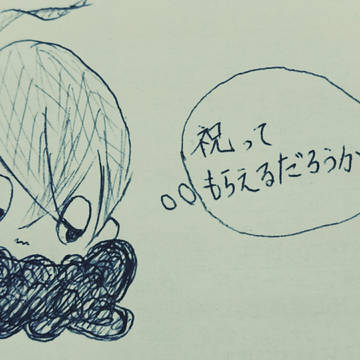 祝って
もらえるだろうか